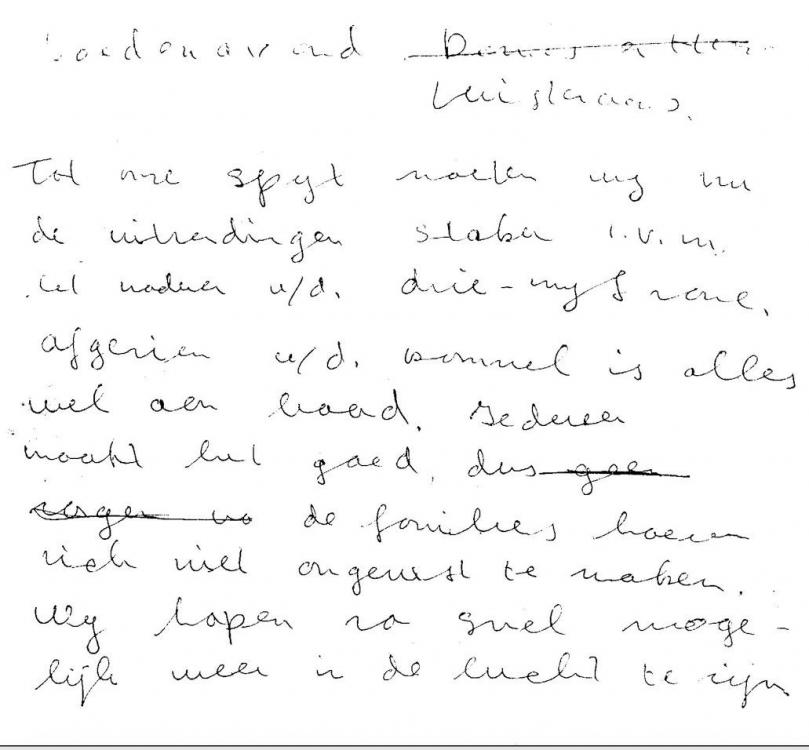 Goedenavond Dames en Heren
luisteraars.
Tot onze spijt moeten wij nu
de uitzendingen staken i.v.m.
het naderen v/d. drie-mijls zone.
afgezien v/d. wommel is alles
wel aan boord. Iedereen
maakt het goed, dus geen
zorgen vo de families hoeven
zich niet ongerust te maken.
Wij hopen zo snel moge-
lijk weer in de lucht te zijn